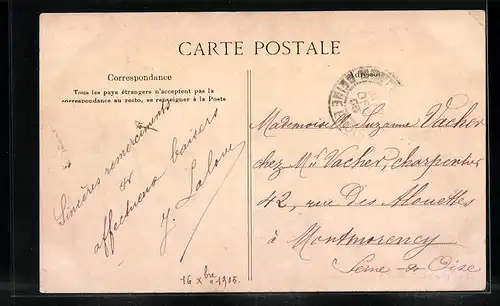 CARTE POSTALE
Correspondance
Tous les pays étrangers n'acceptent pas la
correspondance au recto, se renseigner à la Poste
Sincères remerciements
et
affectueux baisers
J. Lalove
16 Xbre 1905.
Adresse
SEINE
Mademoiselle Suzanne Vacher
chez Mr Vacher, charpentier
42, rue des Alouettes
à Montmorency
Seine-&-Oise